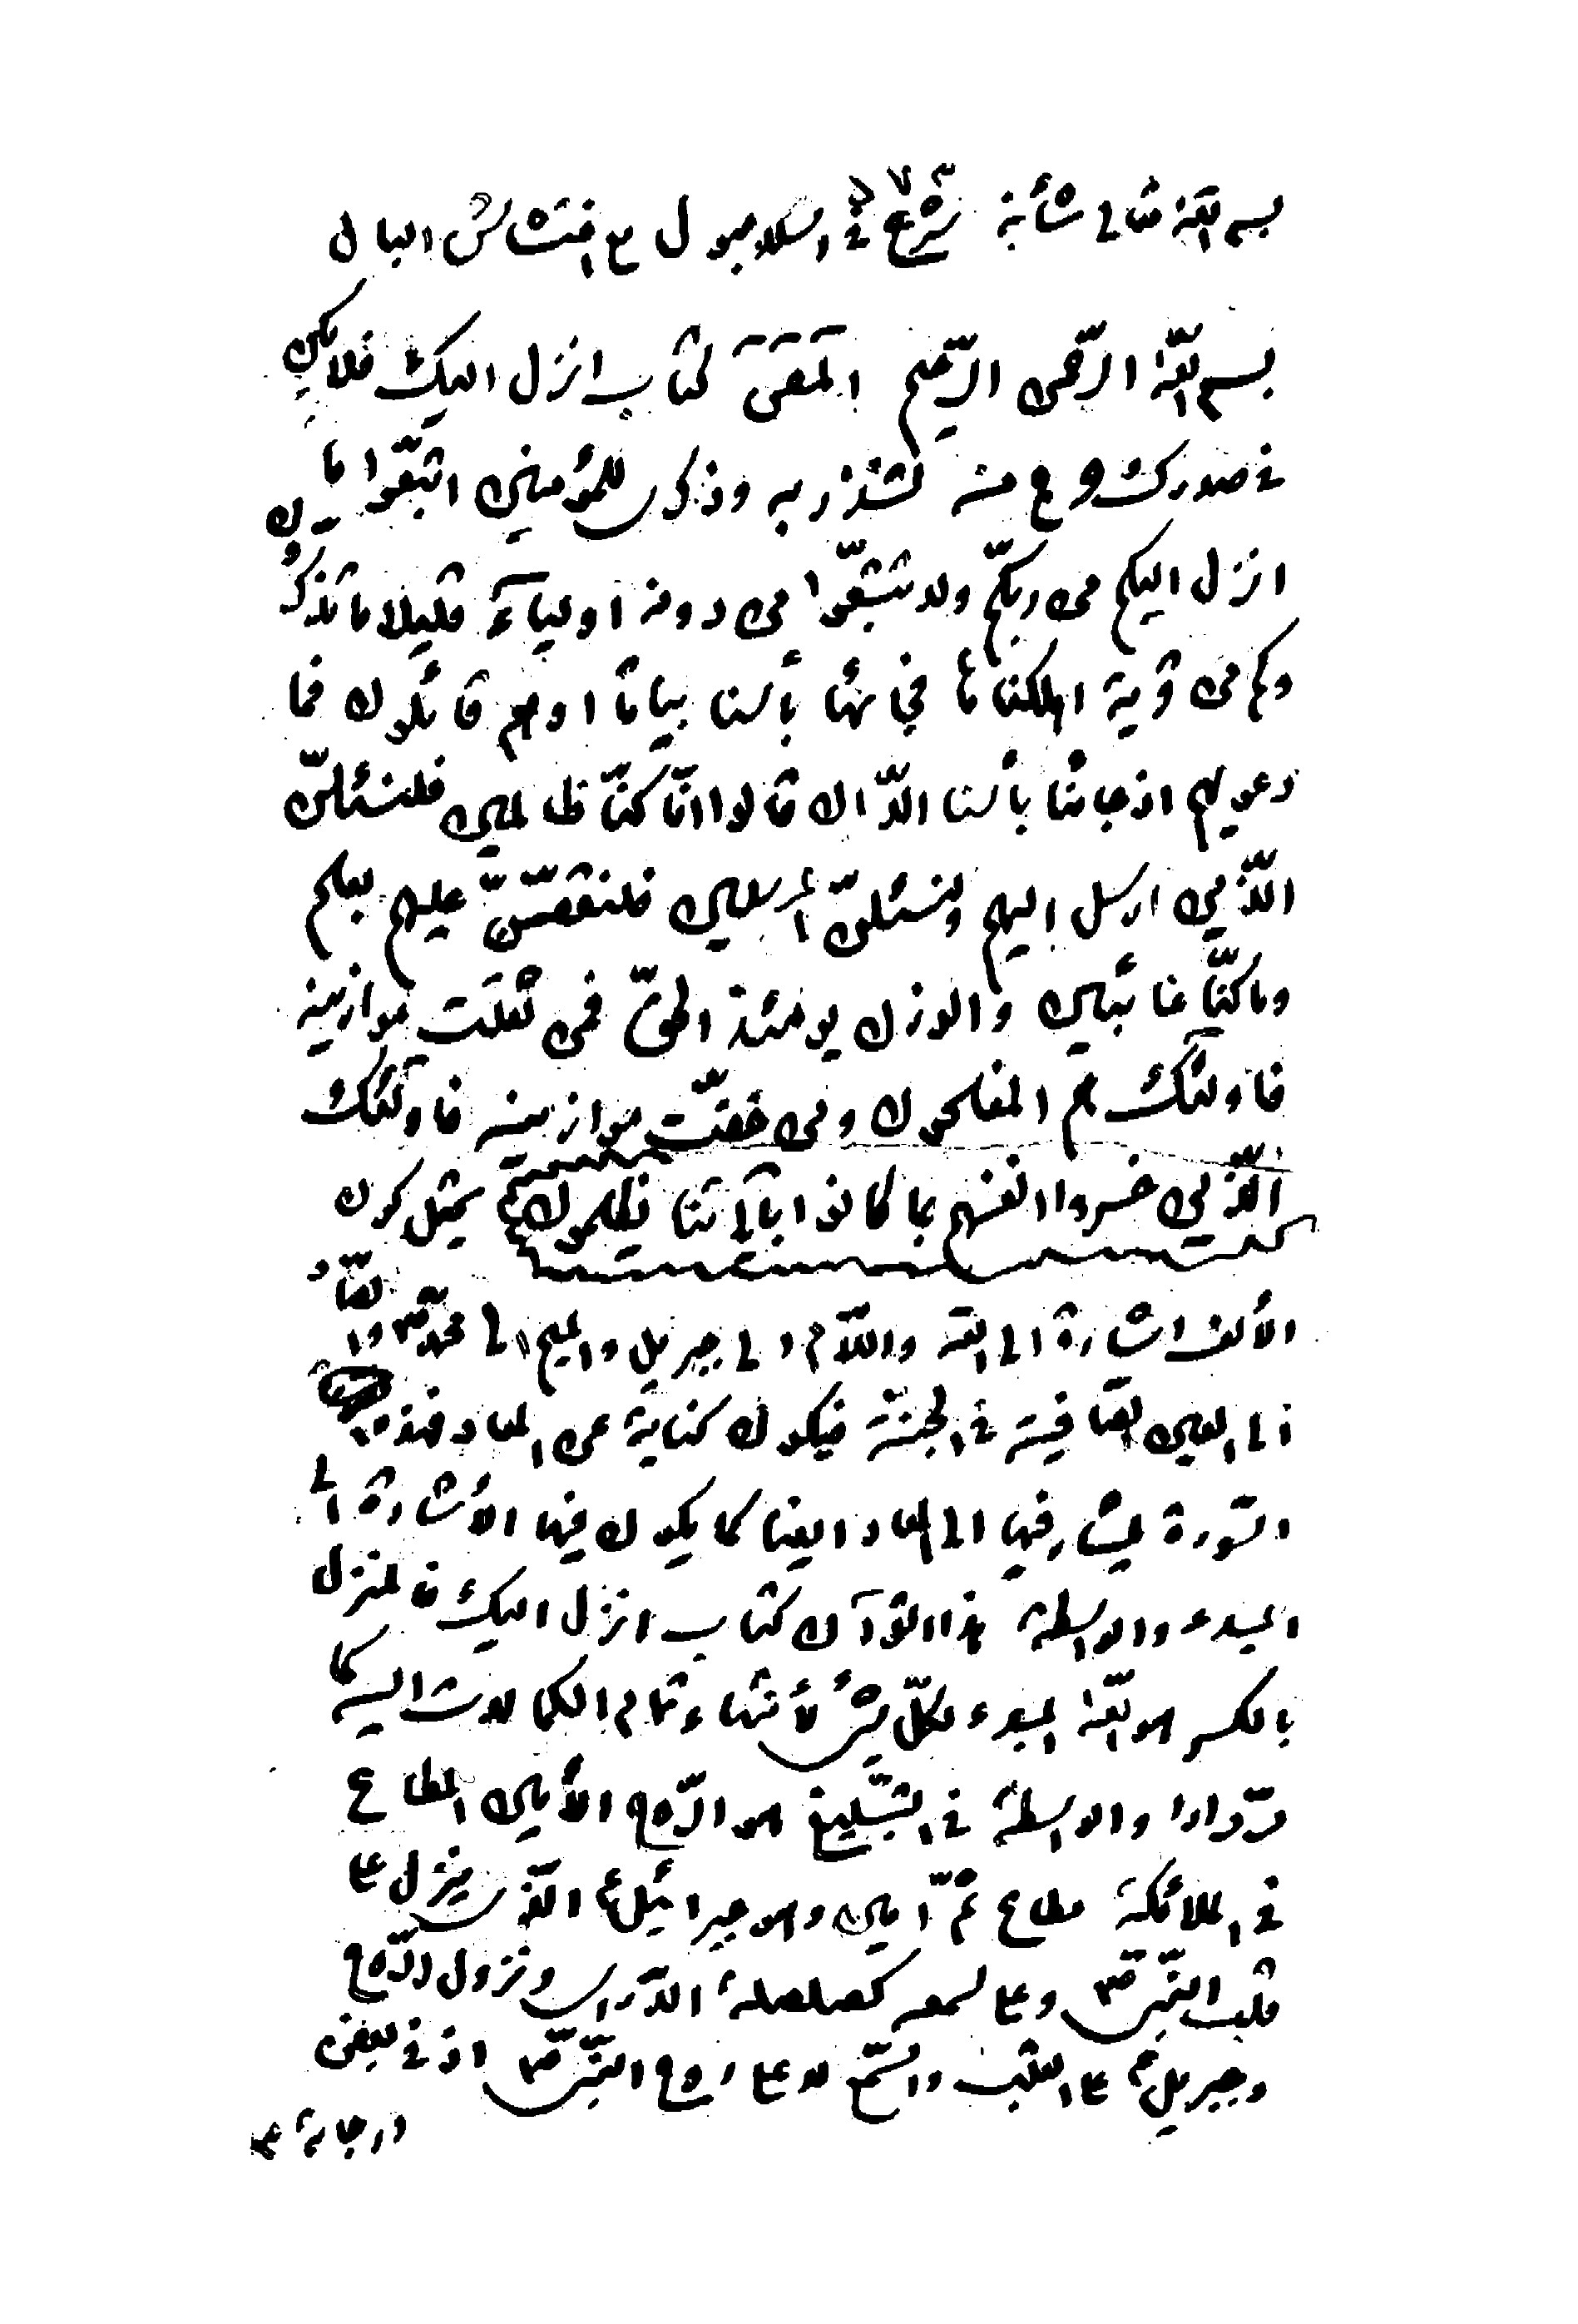 بسم الله تعالى شأنه شرع في اسلامبول مع اغتشاش البال
بسم الله الرّحمن الرّحيم المٓصٓ كتاب انزل اليك فلا يكن
في صدرك حرج منه لتنذر به وذكرى للمؤمنين اتّبعوا ما
انزل اليكم من ربّكم ولا تتّبعوا من دونه اوليآء قليلا ما تذكرون
وكم من قرية اهلكناها فجائها بأسنا بياتا او هم قائلون فما
دعويهم اذ جائنا بأسنا الّا ان قالوا انّا كنّا ظالمين فلنسئلنّ
الّذين ارسل اليهم ولنسئلنّ المرسلين فلنقصّنّ عليهم بعلم
وما كنّا غائبين والوزن يومئذ الحقّ فمن ثقلت موازينه
فاولئك هم المفلحون ومن خفّت موازينه فاولئك
الّذين خسروا انفسهم بما كانوا بآياتنا يظلمون يحتمل كون
الألف اشارة الى الله واللّام الى جبريل والميم الى محمّد ص والصّاد
الى العين الصّافية في الجنّة فيكون كناية عن المعاد فهذه
السّورة يشار فيها الى المعاد ايضا كما يكون فيها الأشارة الى
المبدء والواسطة هذا القرآن كتاب انزل اليك فالمنزل
بالكسر هو الله المبدء لكلّ شئ لأنتهاء تمام الكمالات اليه كما
مرّ مرارا والواسطة في التّبليغ هو الرّوح الأمين المطاع
في الملائكة مطاع ثمّ امين وهو جبرائيل ع الّذى ينزل على
قلب النّبى ص وعلى سمعه كصلصلة الجرس ونزول الرّوح
وجبريل ع على القلب والسّمع لا على روح النّبى ص اذ في بعض
درجاته